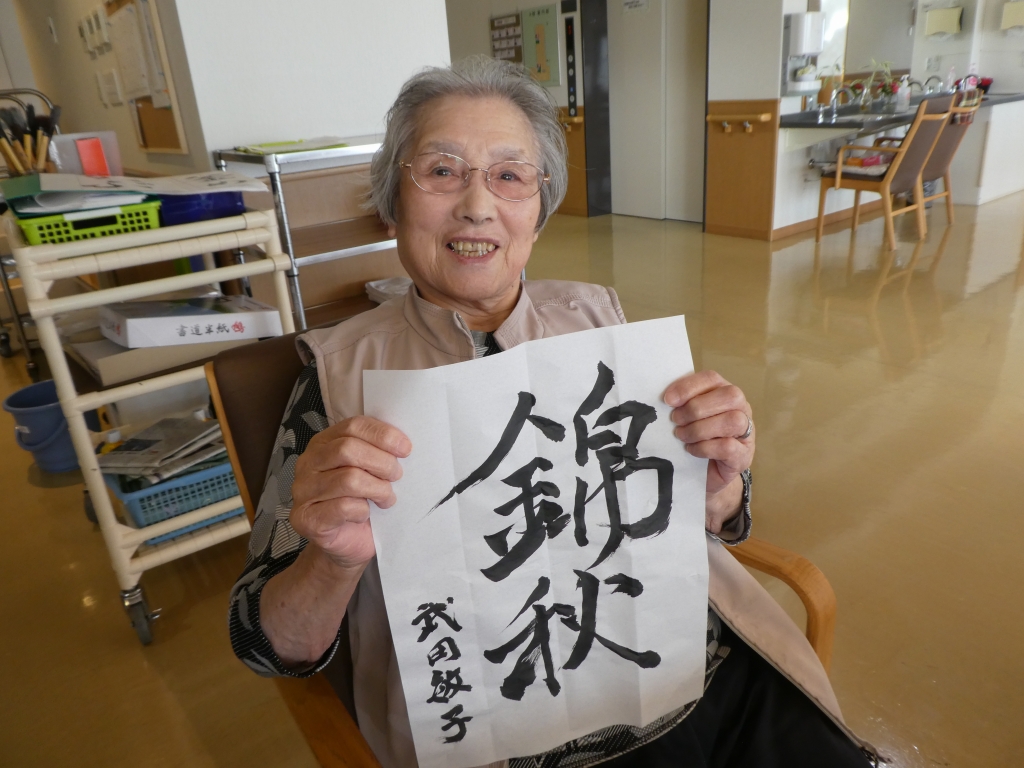 錦秋
武田敏子
書道半紙